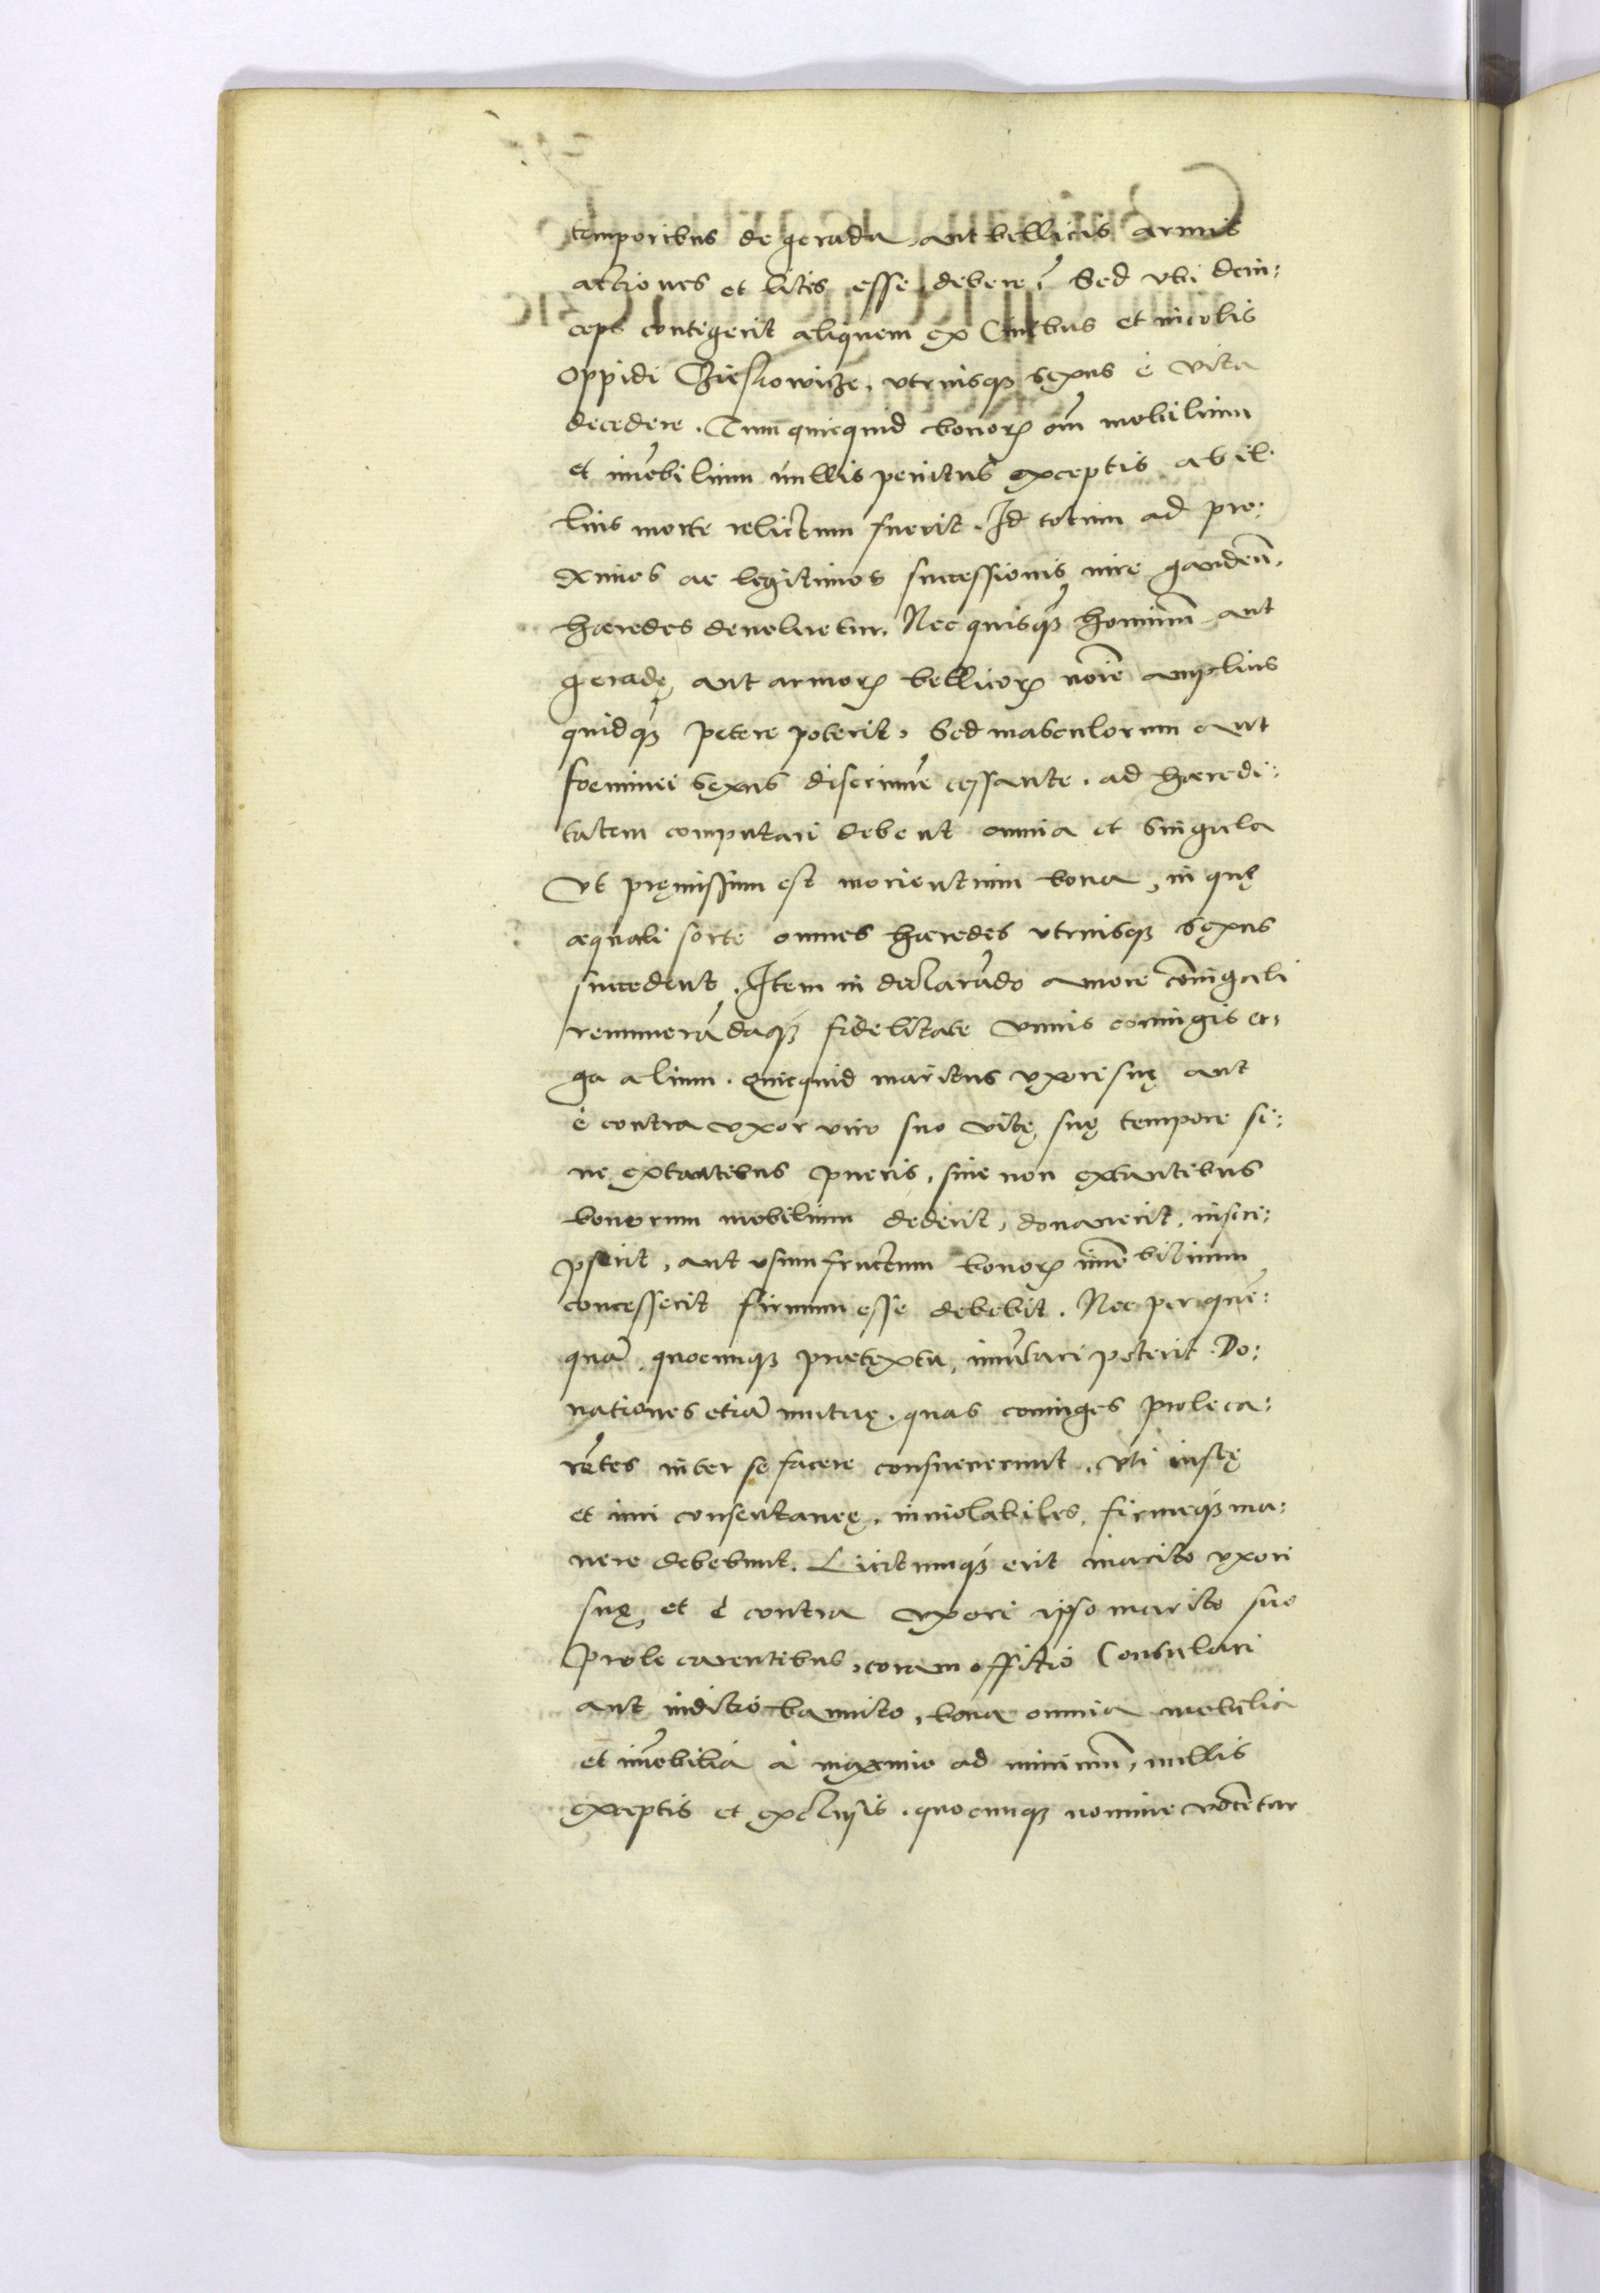 temporibus de gerada, aut bellicis armis
actiones et lites esse debere, Sed ubi dein:
ceps contigerit aliquem ex Civibus et incolis
oppidi utriusq sexus è vita
decedere. Tum quicquid bonorꝝ om̄ mobilium
et im̄obilium nullis penitus exceptis ab il
lius morte relictum fuerit. Id totum ad pro:
ximos ac legitimos successionis iure gauden̄.
haeredes devolvetur. Nec quisq̃ hominũ aut
geradę, aut armorꝝ bellicorꝝ noīe amplius
quidq̃ petere poterit, Sed masculorum aut
foeminei sexus discrimĩe cessante, ad haeredi:
tatem computari debent omnia et singula
Ut pręmissum est morientium bona, in quę
aequali sorte omnes haeredes utriusq sexus
succedent. Item in declarãdo amore cõiugali
remunerãdaq̃ fidelitate unius coniugis er:
ga alium. Quicquid maritus uxori suę aut
è contra uxor viro suo vitę suę tempore si:
ve extantibus pueris, sive non extantibus
bonorum mobilium dederit, donaverit, inscri:
pserit, aut usumfructum bonorꝝ im̄obilium
concesserit firmum esse debebit. Nec per quẽ:
quã, quocunq praetextu, im̄utari poterit. Do:
nationes etiã mutuę, quas coniuges prole ca:
rẽtes inter se facere consueverunt, uti iustę
et iuri consentaneę, inviolabiles, firmeq̃ ma:
nere debebunt. Licitumq̃ erit marito uxori
suę, et è contra uxori ipso marito suo
prole carentibus, coram offitio Consulari
aut inditio bannito, bona omnia mobilia
et im̄obilia à maximo ad minimũ, nullis
exceptis et exclusis, quocunq nomine vocẽtur